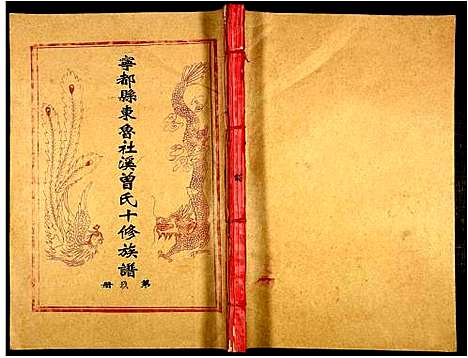 寧都縣東魯社溪曾氏十修族譜
第玖册